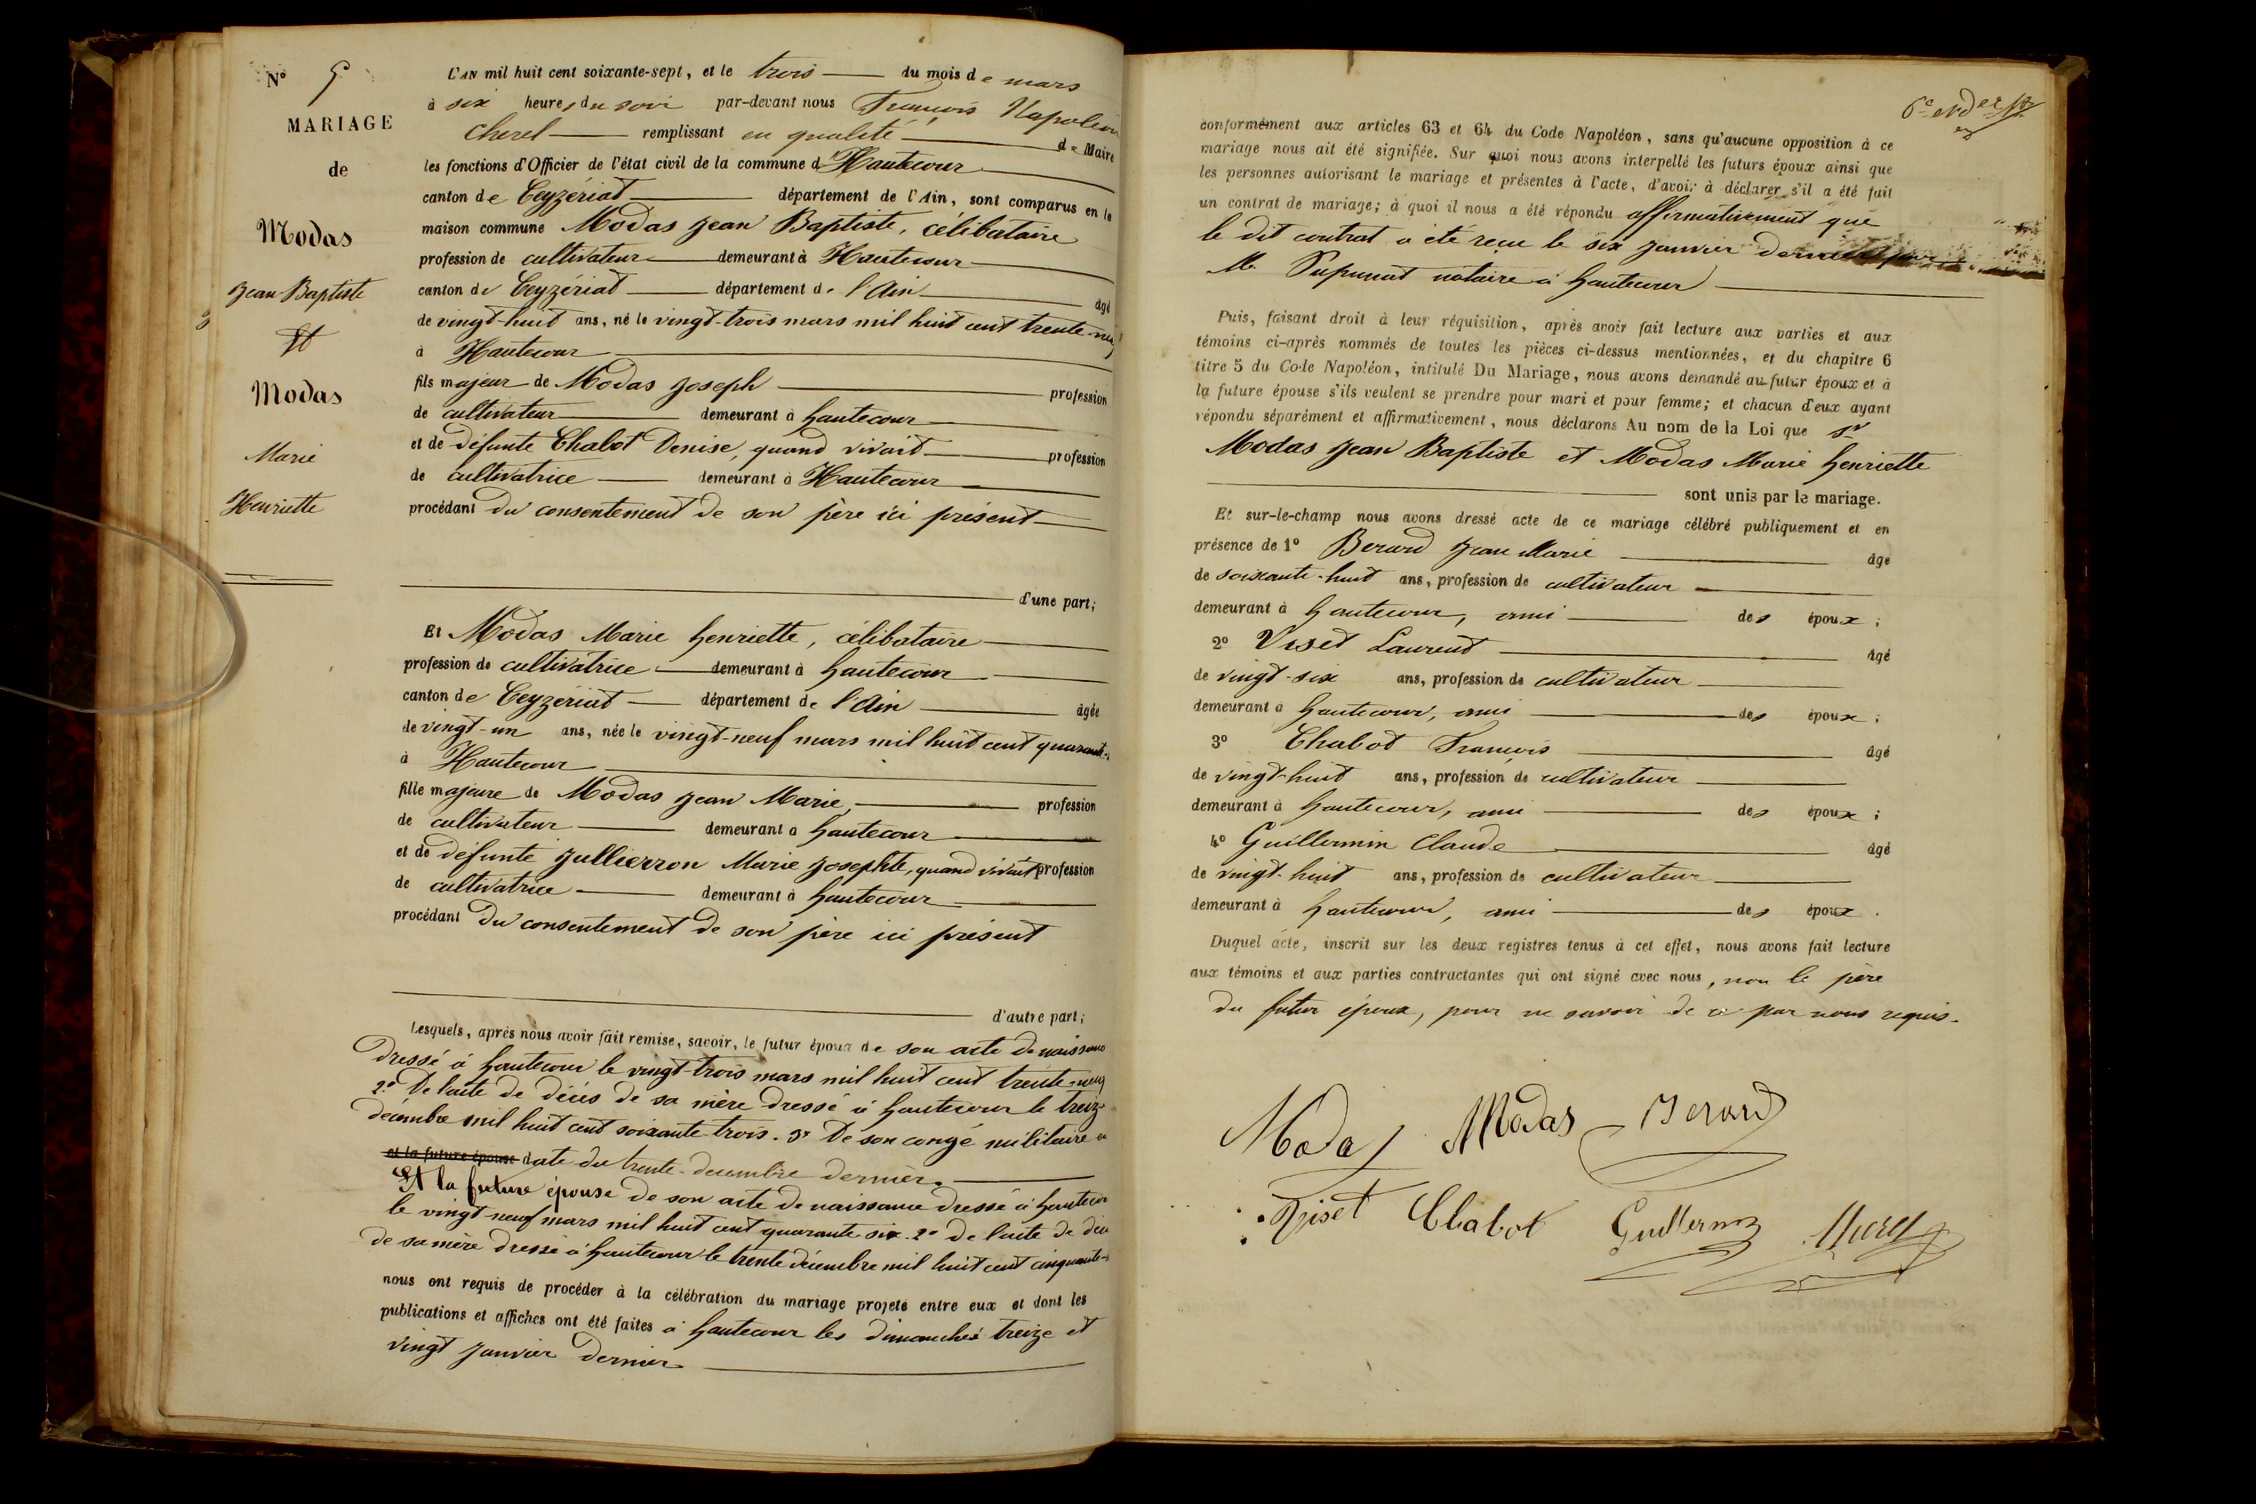 N° 5
MARIAGE
de
Modas
Jean Baptiste
Et
Modas
Marie
Henriette
L'AN mil huit cent soixante-sept, et le trois du mois de mars
à six heures du soir par-devant nous François Napoléon
Cherel remplissant en qualité de Maire
les fonctions d'Officier de l'état civil de la commune d'Hautecour
canton de Ceyzériat département de l'Ain, sont comparus en la
maison commune Modas Jean Baptiste, célibataire
profession de cultivateur demeurant à Hautecour
canton de Ceyzériat département de l'Ain âgé
de vingt-huit ans, né le vingt-trois mars mil huit cent trente-neuf
à Hautecour
fils majeur de Modas Joseph profession
de cultivateur demeurant à hautecour
et de défunte Chabot Denise, quand vivait profession
de cultivatrice demeurant à Hautecour
procédant du consentement de son père ici présent
d'une part;
Et Modas Marie henriette, célibataire
profession de cultivatrice demeurant à hautecour
canton de Ceyzériat département de l'Ain âgée
de vingt-un ans, née le vingt-neuf mars mil huit cent quarante
à Hautecour
fille majeure de Modas Jean Marie, profession
de cultivateur demeurant à hautecour
et de défunte Jullierron Marie Josephte, quand vivait profession
de cultivatrice demeurant à hautecour
procédant du consentement de son père ici présent
d'autre part;
Lesquels, après nous avoir fait remise, savoir, le futur époux de son acte de naissance
dressé à hautecour le vingt-trois mars mil huit cent trente-neuf
2° De l'acte de décès de sa mère dressé à hautecour le treize
décembre mil huit cent soixante trois. 3° De son congé militaire en
et la future épouse date du trente décembre dernier.
Et la future épouse de son acte de naissance dressé à hautecour
le vingt-neuf mars mil huit cent quarante six. 2° De l'acte de décès
de sa mère dressé à hautecour le trente décembre mil huit cent cinquante-
nous ont requis de procéder à la célébration du mariage projeté entre eux et dont les
publications et affiches ont été faites à hautecour les dimanches treize et
vingt Janvier dernier
conformément aux articles 63 et 64 du Code Napoléon, sans qu'aucune opposition à ce
mariage nous ait été signifiée. Sur quoi nous avons interpellé les futurs époux ainsi que
les personnes autorisant le mariage et présentes à l'acte, d'avoir à déclarer s'il a été fait
un contrat de mariage; à quoi il nous a été répondu affirmativement que
le dit contrat a été reçu le six janvier dernier par
Me Pupunat notaire à hautecour
Puis, faisant droit à leur réquisition, après avoir fait lecture aux parties et aux
témoins ci-après nommés de toutes les pièces ci-dessus mentionnées, et du chapitre 6
titre 5 du Code Napoléon, intitulé Du Mariage, nous avons demandé au futur époux et à
la future épouse s'ils veulent se prendre pour mari et pour femme; et chacun d'eux ayant
répondu séparément et affirmativement, nous déclarons Au nom de la Loi que Sr
Modas Jean Baptiste et Modas Marie henriette
sont unis par le mariage.
Et sur-le-champ nous avons dressé acte de ce mariage célébré publiquement et en
présence de 1° Berard Jean Marie âgé
de soixante-huit ans, profession de cultivateur
demeurant à hautecour, ami des époux;
2° Viset Laurent âgé
de vingt-six ans, profession de cultivateur
demeurant à hautecour, ami des époux;
3° Chabot François âgé
de vingt-huit ans, profession de cultivateur
demeurant à hautecour, ami des époux;
4° Guillermin Claude âgé
de vingt-huit ans, profession de cultivateur
demeurant à hautecour, ami des époux.
Duquel acte, inscrit sur les deux registres tenus à cet effet, nous avons fait lecture
aux témoins et aux parties contractantes qui ont signé avec nous, non le père
du futur époux, pour ne savoir de ce par nous requis.
Modas Modas Berard
Viset Chabot Guillermin Cherel